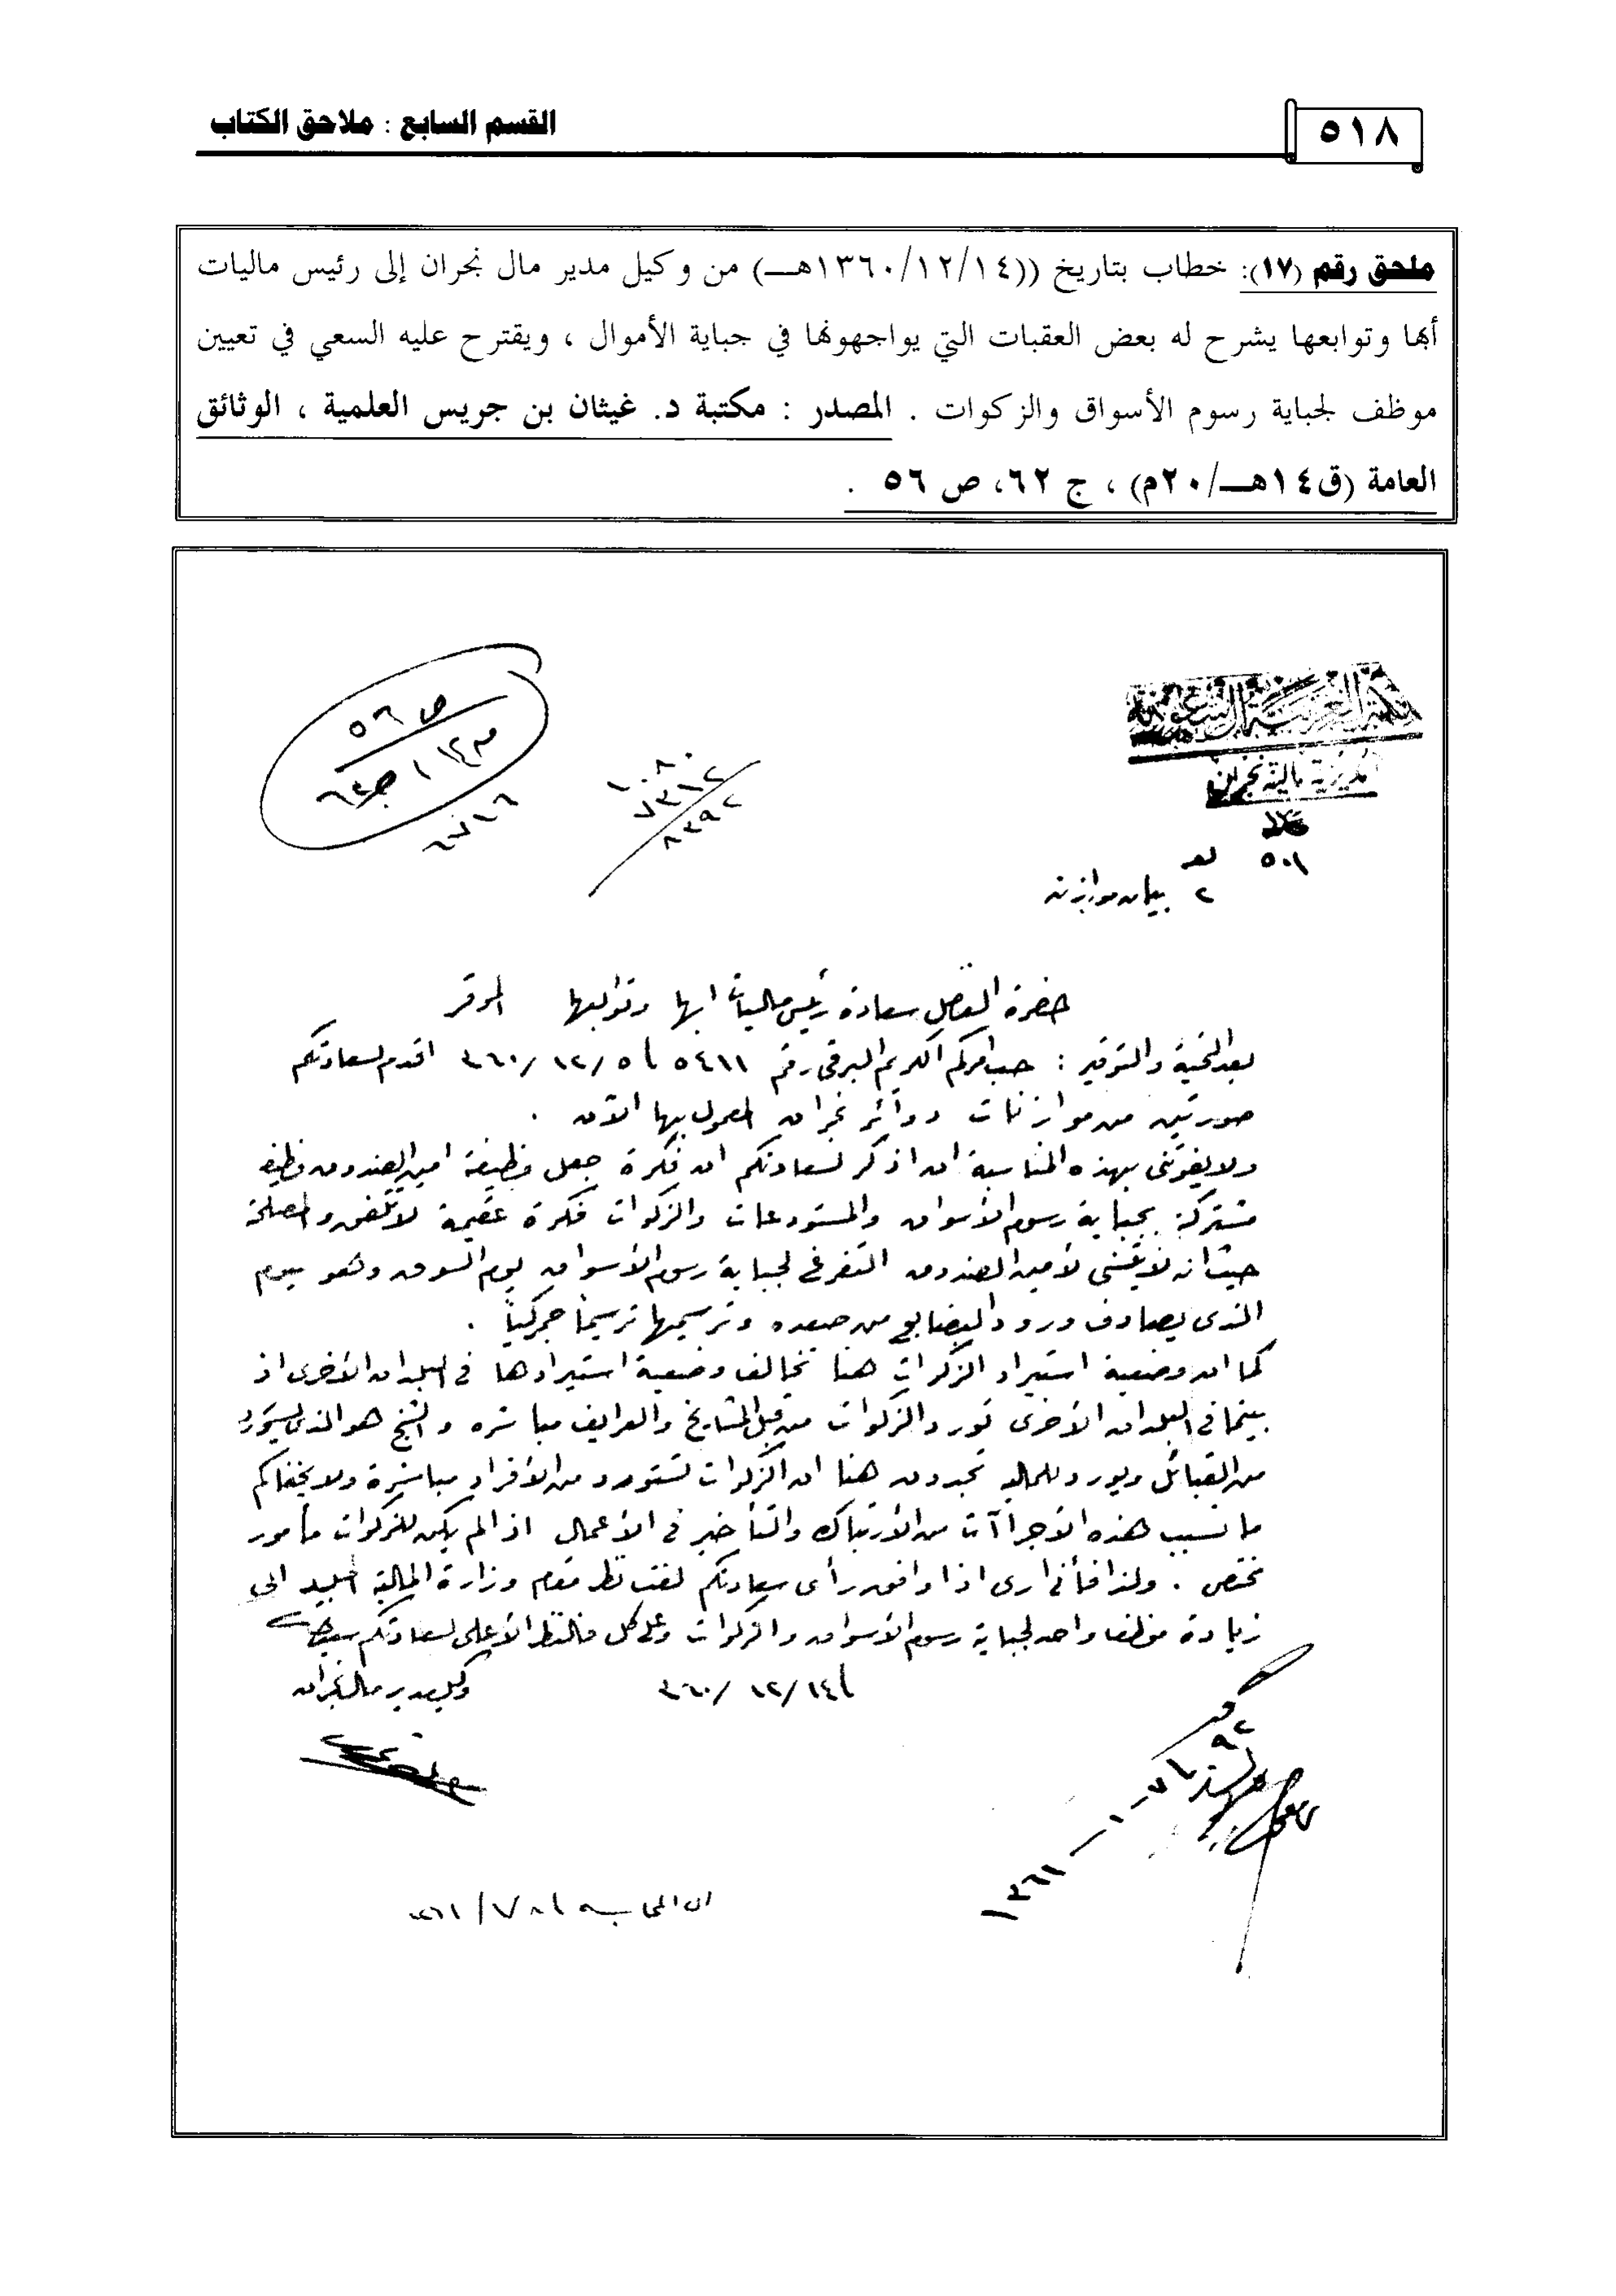 ٥١٨
القسم السابع : ملاحق الكتاب
ملحق رقم (١٧): خطاب بتاريخ ((١٣٦٠/١٢/١٤هـــ) من وكيل مدير مال نجران إلى رئيس ماليات
أبها وتوابعها يشرح له بعض العقبات التي يواجهونها في جباية الأموال ، ويقترح عليه السعي في تعيين
موظف لجباية رسوم الأسواق والزكوات . المصدر : مكتبة د. غيثان بن جريس العلمية ، الوثائق
العامة (ق١٤هـــ/٢٠م) ، ج ٦٢، ص ٥٦ .
ص ٥٦
المملكة العربية السعودية
مديرية مالية نجران
١٠٨٠
٧٣١٢
٨٣٩٢
٥٠١
٢ بيان موازنة
حضرة المفضل سعادة رئيس ماليات ابها وتوابعها الموقر
بعد التحية والتوقير : حسب امركم الكريم البرقي رقم ٥٤١١ ٥/١٢/٣٦٠ اقدم لسعادتكم
صورتين من موازنات دوائر نجران المعمول بها الآن .
ولا يفوتني بهذه المناسبة ان اذكر لسعادتكم ان فكرة جعل وظيفة امين الصندوق وظيفة
مشتركة بجباية رسوم الأسواق والمستودعات والزكوات فكرة عقيمة لا تتفق والمصلحة
حيث انه لا يتسنى لأمين الصندوق التفرغ لجباية رسوم الأسواق يوم السوق وهو يوم
الذي يصادف ورود البضايع من صعده وترسيمها ترسيماً جمركياً .
كما ان وضعية استيراد الزكوات هنا تخالف وضعية استيرادها في البلدان الأخرى اذ
بينما في البلدان الأخرى تورد الزكوات من قبل المشايخ والعرايف مباشره والشيخ هو الذي يستورد
من القبائل ويورد للماليه تجدون هنا ان الزكوات تستورد من الأفراد مباشرة ولا يخفاكم
ما تسبب هذه الأجراآت من الأرتباك والتأخير في الأعمال اذا لم يكن للزكوات مأمور
مختص . ولذا فأني ارى اذا وافق رأي سعادتكم لفت نظر مقام وزارة المالية الجليلة الى
زيادة موظف واحد لجباية رسوم الأسواق والزكوات وعلى كل فالنظر الأعلى لسعادتكم سيدي
١٤/١٢/٣٦٠
وكيل مدير مال نجران
٩٢
٧-١-١٣٦١